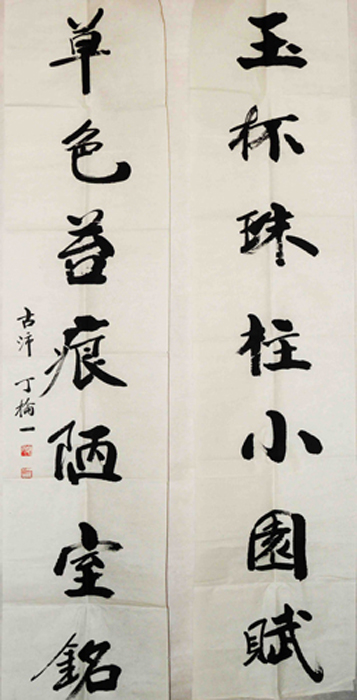 玉杯珠柱小園賦
草色苔痕陋室銘
古沛 丁